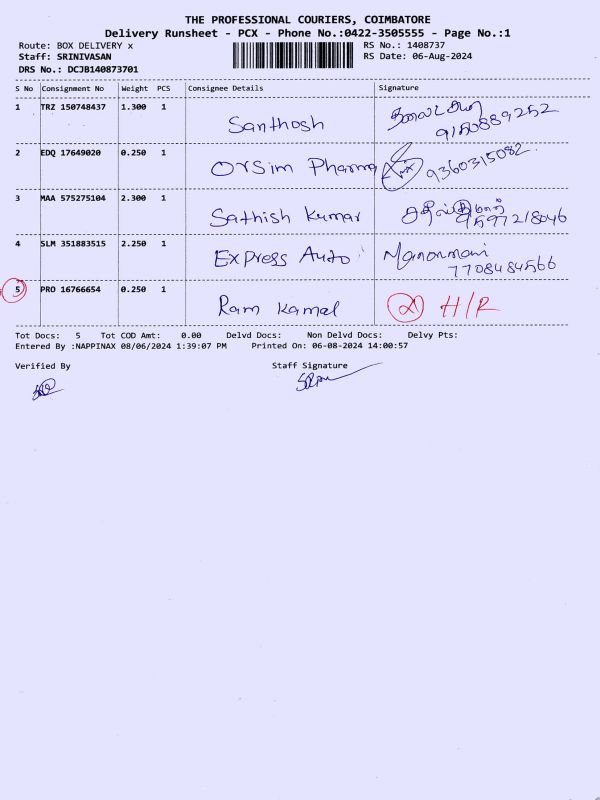 THE PROFESSIONAL COURIERS, COIMBATORE
Delivery Runsheet - PCX - Phone No.:0422-3505555 - Page No.:1
Route: BOX DELIVERY x RS No.: 1408737
Staff: SRINIVASAN RS Date: 06-Aug-2024
DRS No.: DCJB140873701
S No Consignment No Weight PCS Consignee Details Signature
1 TRZ 150748437 1.300 1 Santhosh 9150889252
2 EDQ 17649020 0.250 1 Orsim Pharma 9360315082
3 MAA 575275104 2.300 1 Sathish Kumar 9597218046
4 SLM 351883515 2.250 1 Express Auto Manonmani
7708484566
5 PRO 16766654 0.250 1 Ram Kamal H/R
Tot Docs: 5 Tot COD Amt: 0.00 Delvd Docs: Non Delvd Docs: Delvy Pts:
Entered By :NAPPINAX 08/06/2024 1:39:07 PM Printed On: 06-08-2024 14:00:57
Verified By Staff Signature